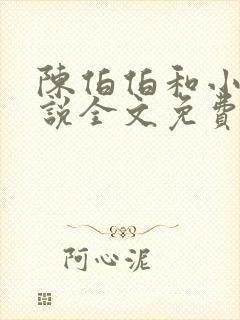 陳伯伯和小
說全文免費
阿心泥